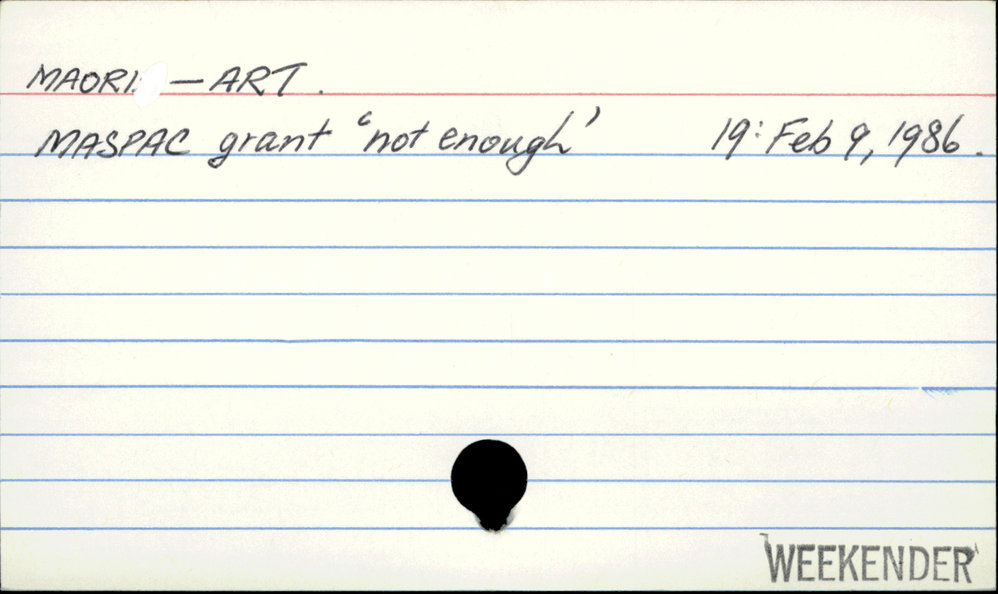 MAORI — ART.
MASPAC grant "not enough' 19: Feb 9, 1986.
WEEKENDER